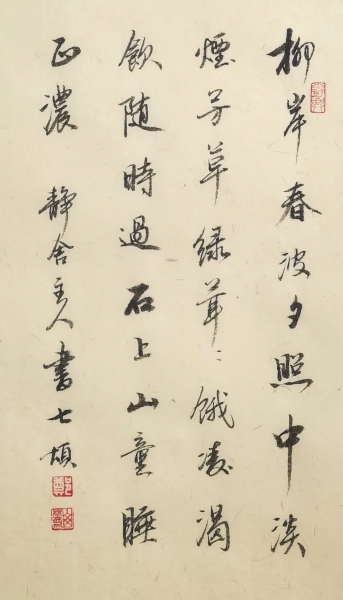 柳岸春波夕照中淡
煙芳草綠茸〻饿凌渴
飲随時過石上山童睡
正濃 静舍主人書七頌